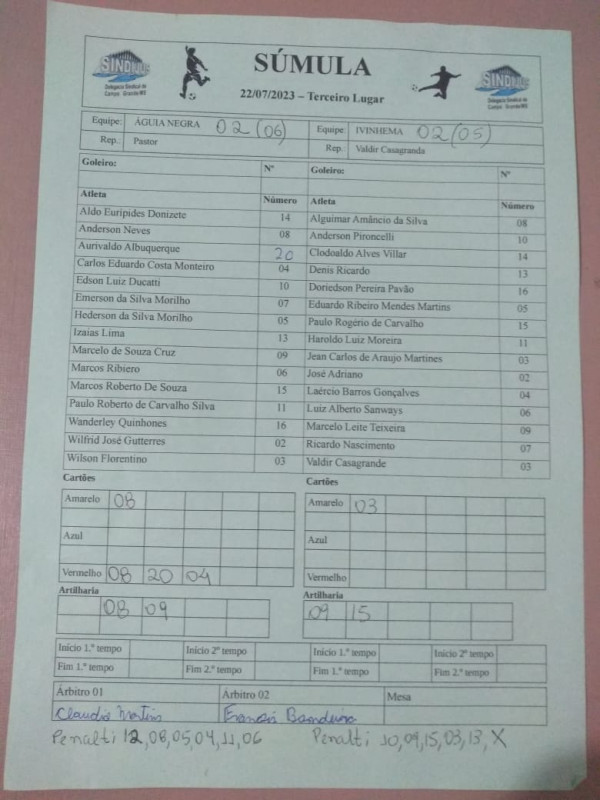 SINDIJUS
Delegacia Sindical de
Campo Grande/MS
SÚMULA
22/07/2023 – Terceiro Lugar
SINDIJUS
Delegacia Sindical de
Campo Grande/MS
Equipe: ÁGUIA NEGRA 02 (06) Equipe: IVINHEMA 02 (05)
Rep.: Pastor Rep. Valdir Casagranda
Goleiro: Nº Goleiro: Nº
Atleta Número Atleta Número
Aldo Euripides Donizete 14 Alguimar Amâncio da Silva 08
Anderson Neves 08 Anderson Pironcelli 10
Aurivaldo Albuquerque 20 Clodoaldo Alves Villar 14
Carlos Eduardo Costa Monteiro 04 Denis Ricardo 13
Edson Luiz Ducatti 10 Doriedson Pereira Pavão 16
Emerson da Silva Morilho 07 Eduardo Ribeiro Mendes Martins 05
Hederson da Silva Morilho 05 Paulo Rogério de Carvalho 15
Izaias Lima 13 Haroldo Luiz Moreira 11
Marcelo de Souza Cruz 09 Jean Carlos de Araujo Martines 03
Marcos Ribiero 06 José Adriano 02
Marcos Roberto De Souza 15 Laércio Barros Gonçalves 04
Paulo Roberto de Carvalho Silva 11 Luiz Alberto Sanways 06
Wanderley Quinhones 16 Marcelo Leite Teixeira 09
Wilfrid José Gutterres 02 Ricardo Nascimento 07
Wilson Florentino 03 Valdir Casagrande 03
Cartões Cartões
Amarelo 08 Amarelo 03
Azul Azul
Vermelho 08 20 04 Vermelho
Artilharia Artilharia
08 09 09 15
Início 1.º tempo Início 2º tempo Início 1.º tempo Início 2º tempo
Fim 1.º tempo Fim 2.º tempo Fim 1.º tempo Fim 2.º tempo
Árbitro 01 Árbitro 02 Mesa
Claudio Martins
Penalti 12,08,05,04,11,06 Penalti 10,09,15,03,13,X